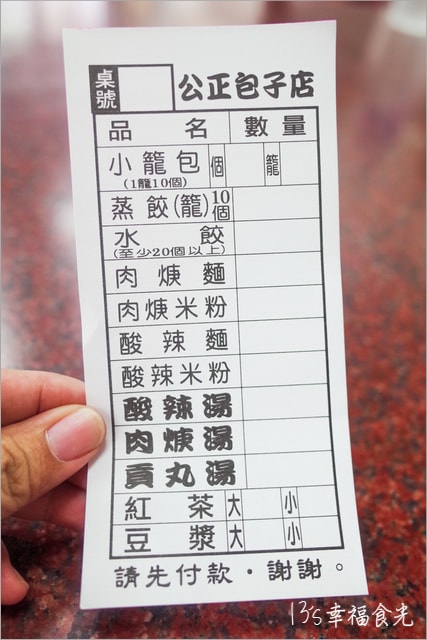 桌號 公正包子店
品名 數量
小籠包 個 籠
(1籠10個)
蒸餃(籠)10個
水餃
(至少20個以上)
肉焿麵
肉焿米粉
酸辣麵
酸辣米粉
酸辣湯
肉焿湯
貢丸湯
紅茶 大 小
豆漿 大 小
請先付款・謝謝。
13's幸福食光